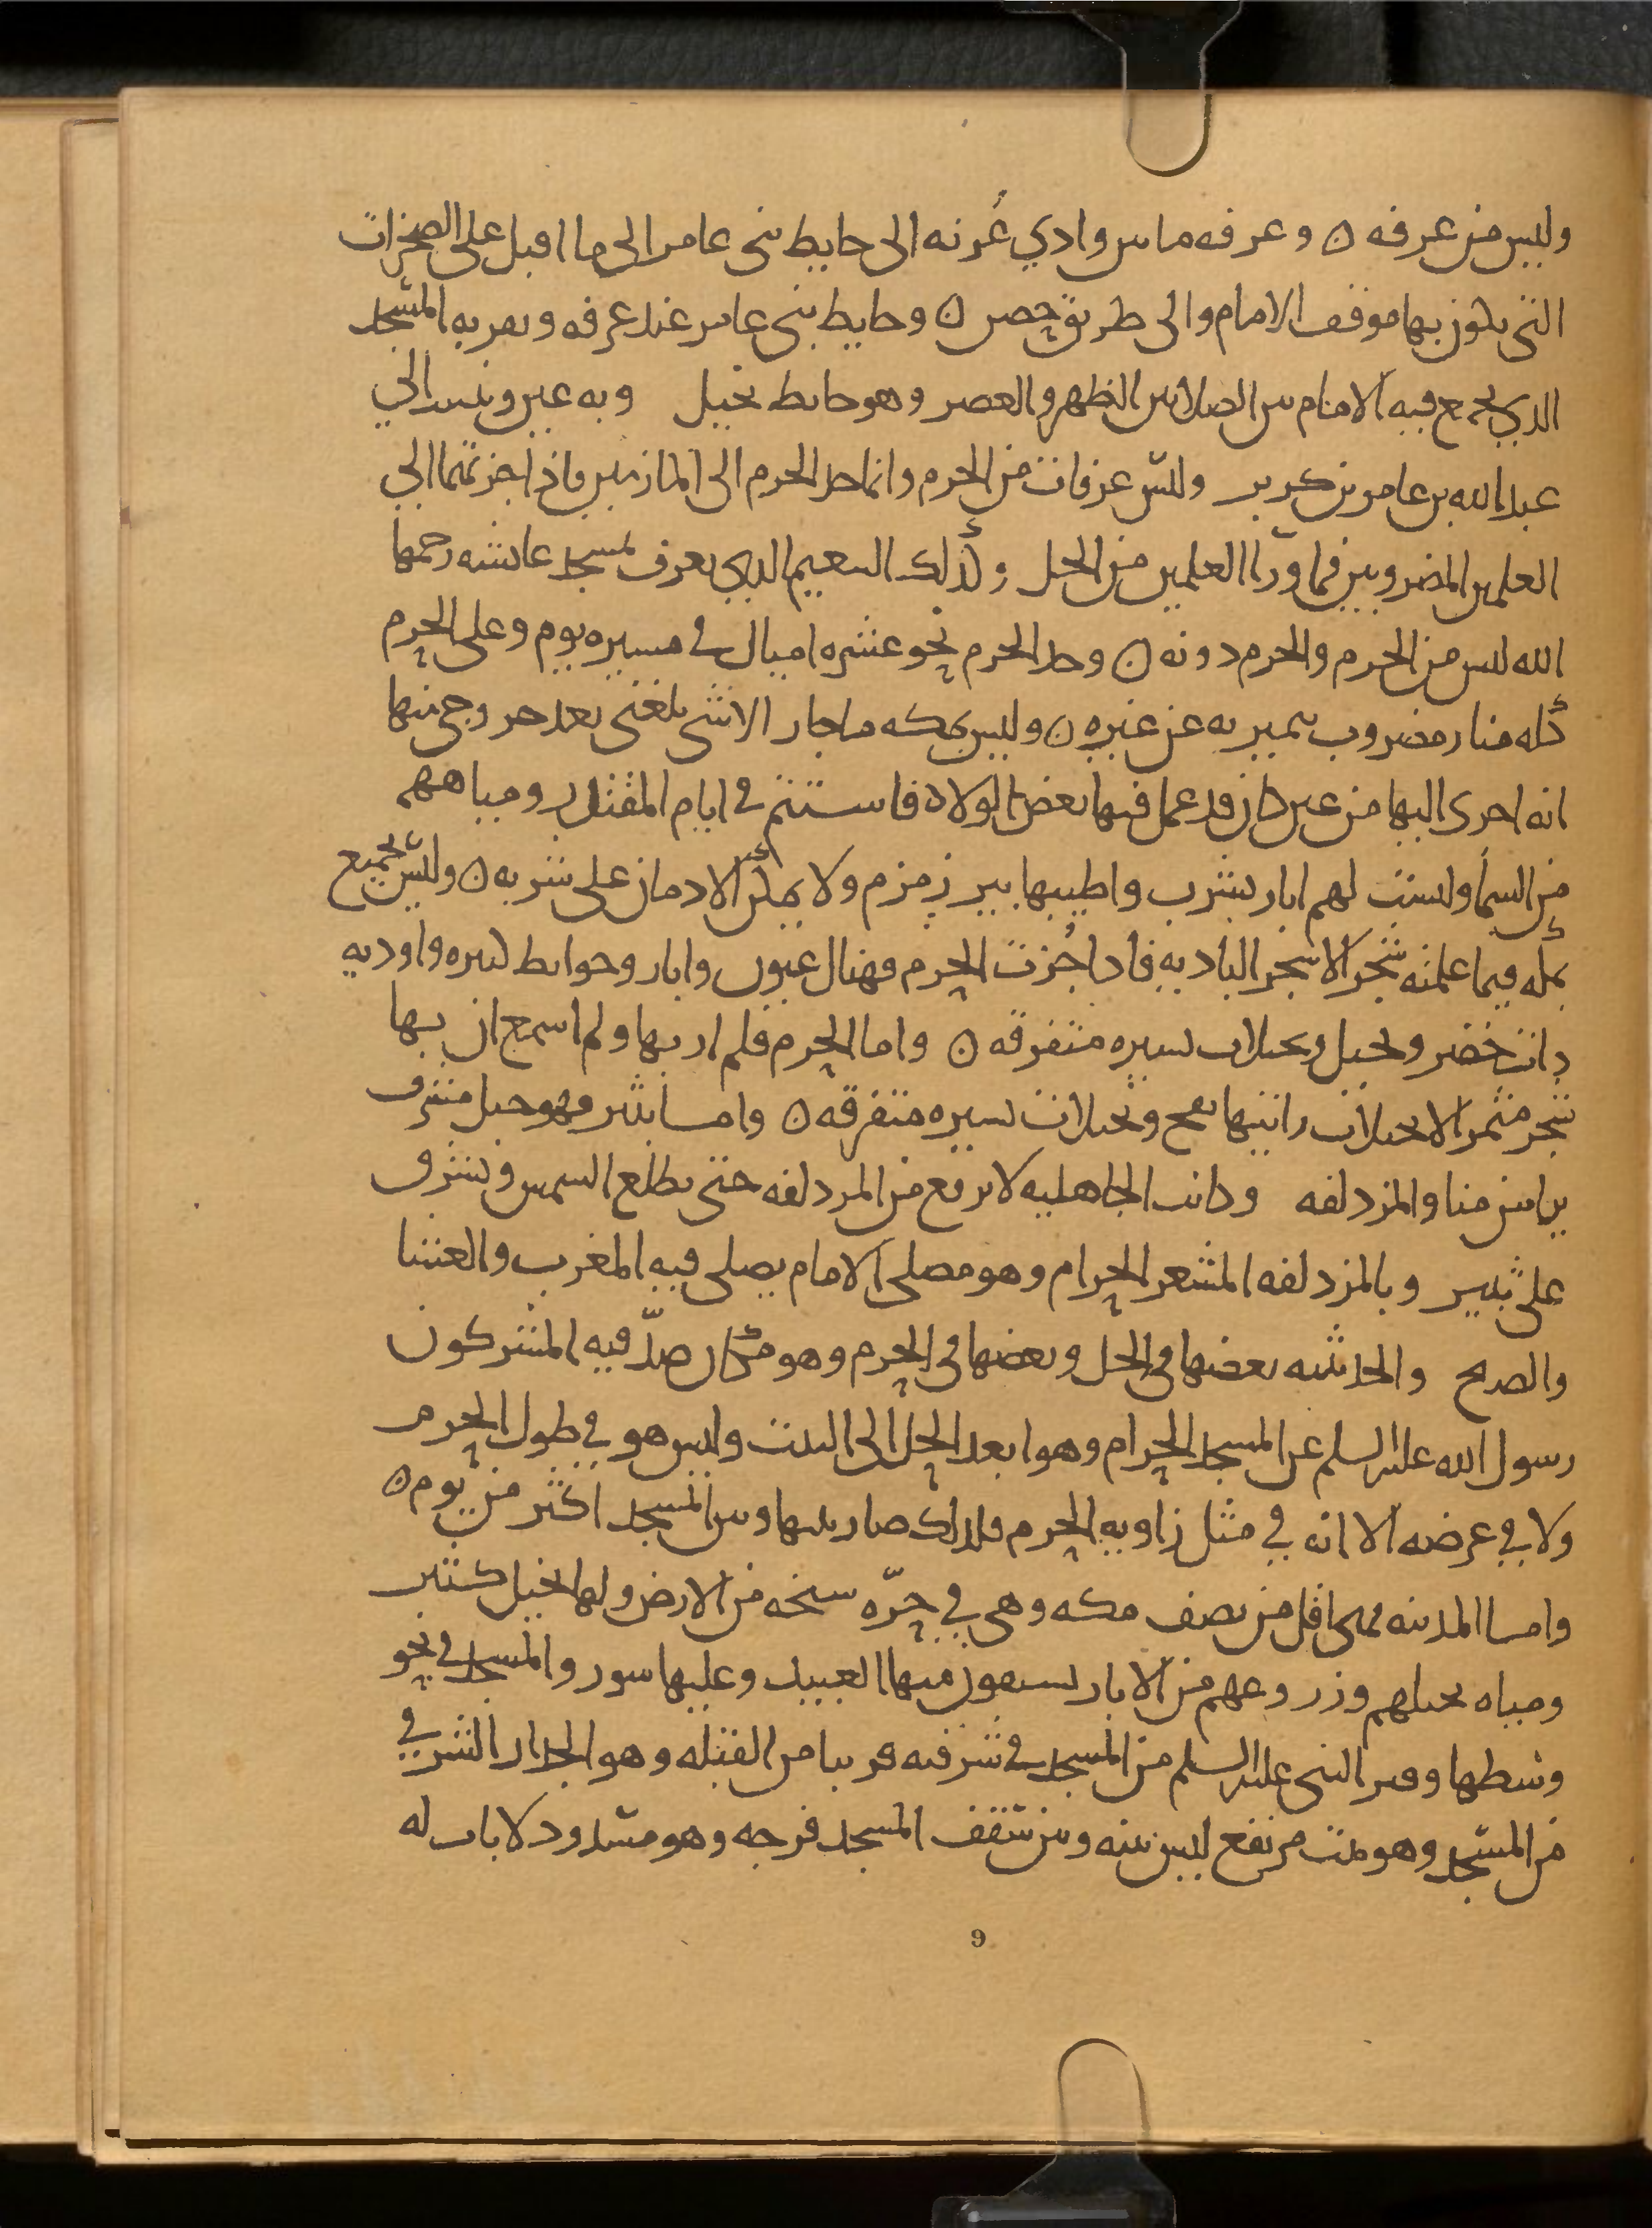 وليس من عرفه ن وعرفه ما بين وادي عُرنه الى حايط بنى عامر الى ما اقبل على الصخرات
التى يكون بها موقف الامام والى طريق حصن ن وحايط بنى عامر عند عرفه وبقربه المسجد
الذي يجمع فيه الامام بين الصلاتين الظهر والعصر وهو حايط نخيل وبه عين وينسب الى
عبد الله بن عامر بن كريز وليس عرفات من الحرم وانما حد الحرم الى المازمين فاذا جزتهما الى
العلمين المضروبين فما ورآ العلمين من الحل وكذلك التنعيم الذي يعرف بمسجد عايشه رحمها
الله ليس من الحرم والحرم دونه ن وحد الحرم نحو عشره اميال في مسيره يوم وعلى الحرم
كله منار مضروب يتميز به عن غيره ن وليس بمكه ما جار الا شى بلغنى بعد خروجى منها
انه اجرى اليها من عين كان قد عمل فيها بعض الولاه فاستتم في ايام المقتدر ومياههم
من السمآ وليست لهم ابار تشرب واطيبها بير زمزم ولا يمكن الادمان على شربه ن وليس بجميع
مكه فيما علمته شجر الا شجر الباديه فاذا جُزت الحرم فهناك عيون وابار وحوايط كثيره واوديه
ذات خضر ونخيل ونخيلات يسيره متفرقه ن واما الحرم فلم ار بها ولم اسمع ان بها
شجر مثمر الا نخيلات رايتها بفخ ونخيلات يسيره متفرقه ن واما ثبير فهو جبل مشرف
يرا من منا والمزدلفه وكانت الجاهليه لا ترفع من المزدلفه حتى تطلع الشمس وتشرق
على ثبير وبالمزدلفه المشعر الحرام وهو مصلى الامام يصلى فيه المغرب والعشا
والصبح والحديبيه بعضها في الحل وبعضها في الحرم وهو مكان صدّ فيه المشركون
رسول الله عليه السلم عن المسجد الحرام وهو ابعد الحل الى البيت وليس هو في طول الحرم
ولا في عرضه الا انه في مثل زاويه الحرم فلذلك صار بينها وبين المسجد اكثر من يوم ن
واما المدينه فهى اقل من نصف مكه وهى في حرّه سبخه من الارض ولها نخيل كثير
ومياه نخيلهم وزروعهم من الابار يسقون منها العبيد وعليها سور والمسجد في نحو
وسطها وقبر النبى عليه السلم من المسجد في شرقيه قريبا من القبله وهو الجدار الشرقي
من المسجد وهو بيت مرتفع ليس بينه وبين سقف المسجد فرجه وهو مسدود لا باب له
9